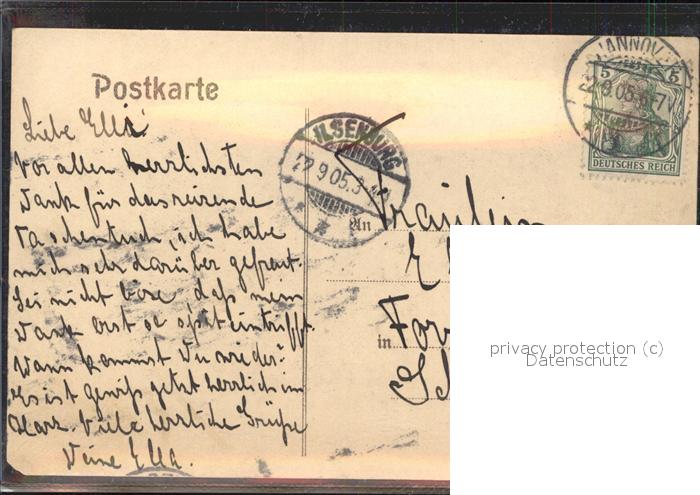 Postkarte
HANNOV
22.9.05.
5 5
DEUTSCHES REICH
ILSENBURG
22.9.05.3
Liebe Ella!
Vor allen herrlichsten
Dank für das reizende
Taschentuch, ich habe
mich sehr darüber gefreut.
Sei nicht böse, daß mein
Dank erst so spät eintrifft.
Wann kommst Du wieder?
Es ist gewiß jetzt herrlich im
Harz. Viele herzliche Grüße
Deine Ella.
An Fräulein
E
in
privacy protection (c)
Datenschutz